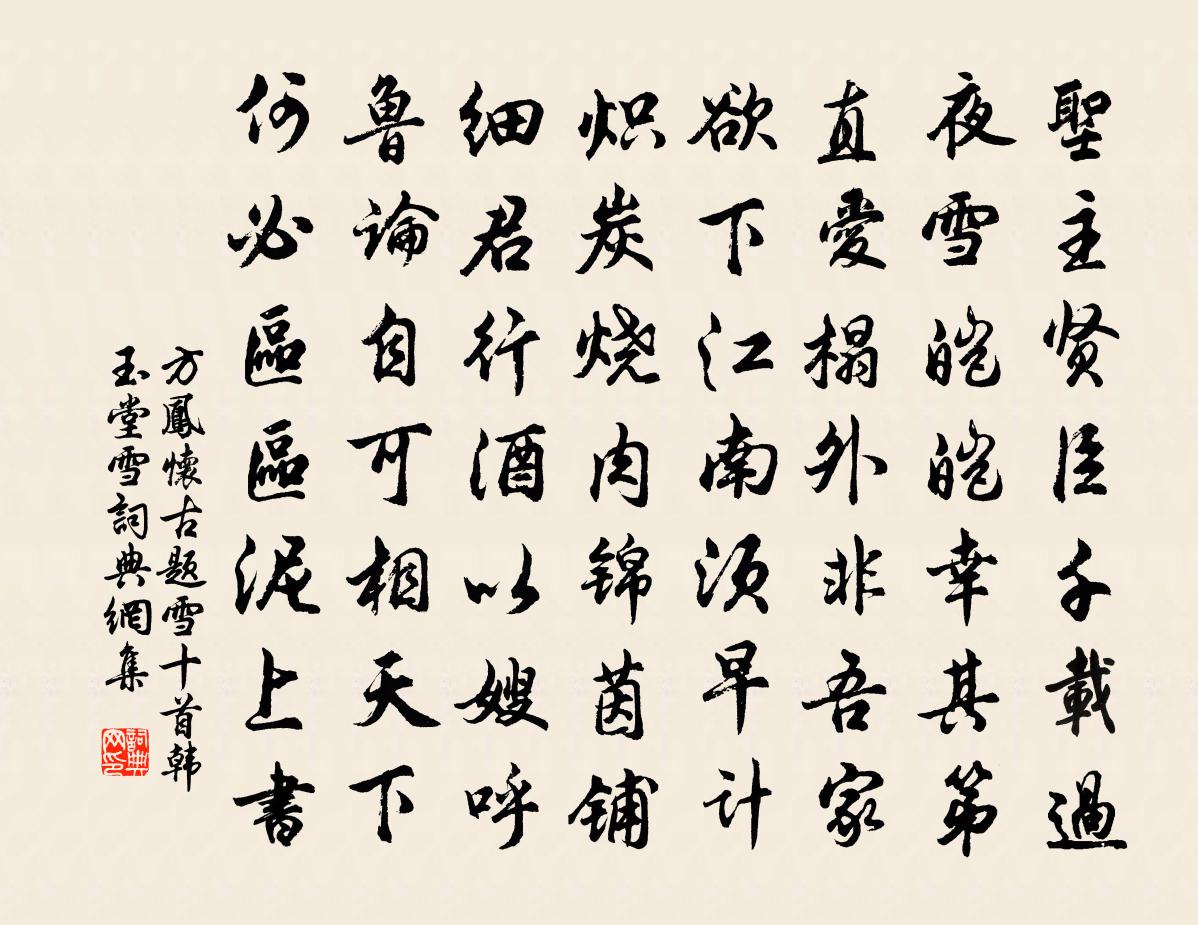 聖主贤臣千載過
夜雪皑皑幸其第
直愛榻外非吾家
欲下江南须早计
炽炭烧肉锦茵铺
细君行酒以嫂呼
魯论自可相天下
何必區區泥上書
方鳳懷古题雪十首韩
玉堂雪詞典網集
詞典
网印